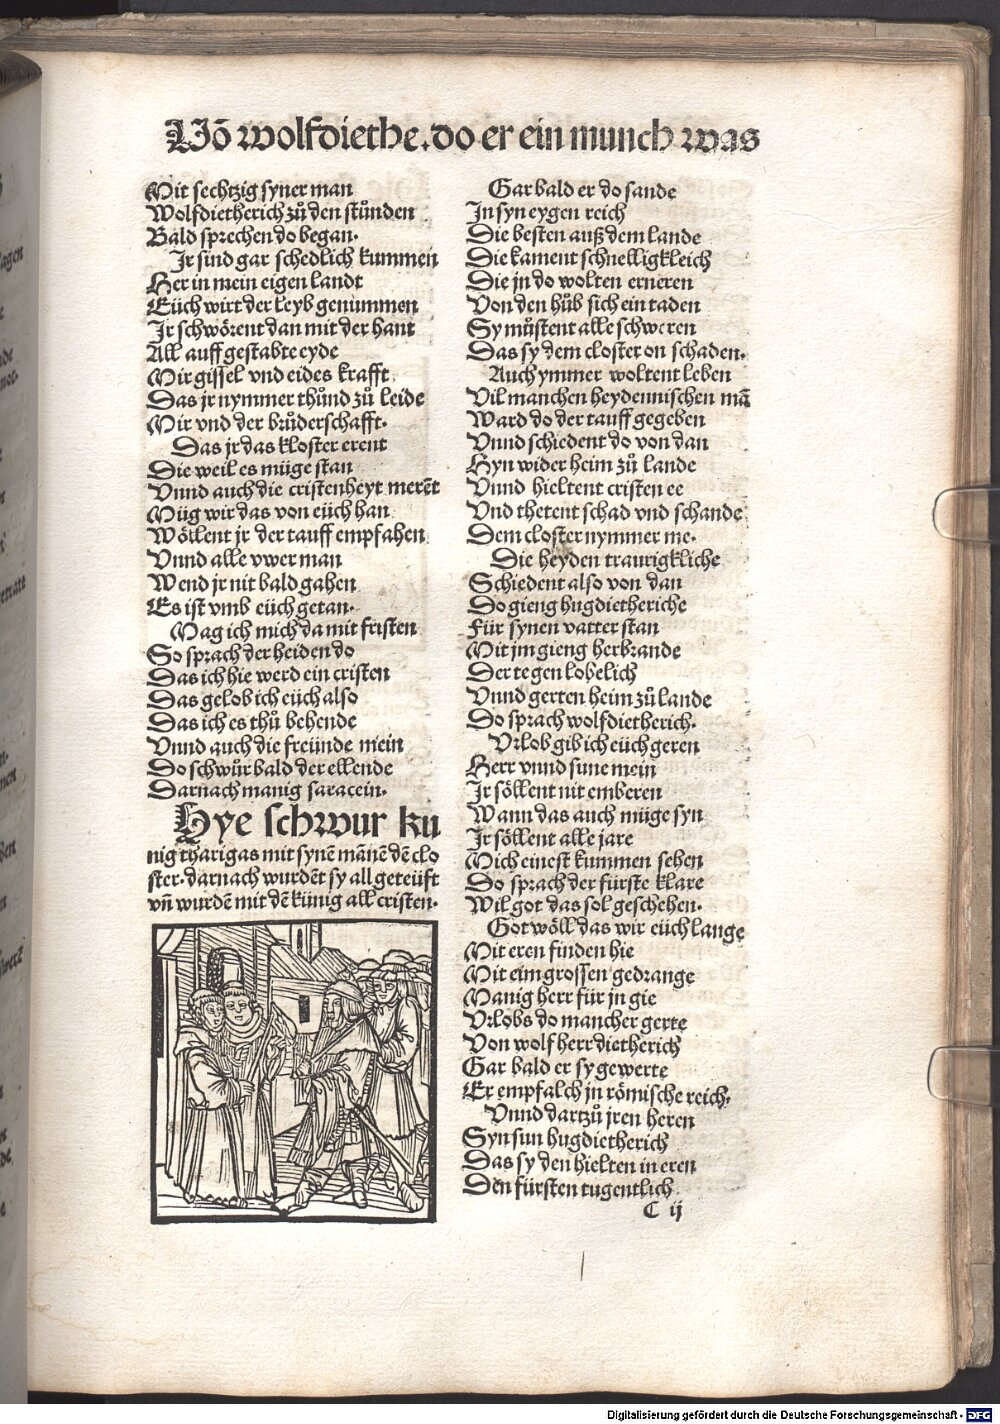 Võ wolfdiethe. do er ein munch was
Mit sechtzig syner man
Wolfdietherich zů den stůnden
Bald sprechen do began.
Jr sind gar schedlich kummen
Her in mein eigen landt
Eüch wirt der leyb genummen
Jr schwörent dan mit der hant
All auff gestabte eyde
Mir gissel vnd eides krafft
Das jr nymmer thůnd zů leide
Mir vnd der brůderschafft.
Das jr das kloster erent
Die weil es müge stan
Vnnd auch die cristenheyt merẽt
Müg wir das von eüch han
Wöllent jr der tauff empfahen
Vnnd alle vwer man
Wend jr nit bald gahen
Es ist vmb eüch getan.
Mag ich mich da mit fristen
So sprach der heiden do
Das ich hie werd ein cristen
Das gelob ich eüch also
Das ich es thů behende
Vnnd auch die freünde mein
Do schwůr bald der ellende
Darnach manig saracein.
Hye schwur kü
nig tyarigas mit synẽ mãnẽ dẽ clo
ster. darnach wurdẽt sy all geteüft
vñ wurdẽ mit dẽ künig all cristen.
Gar bald er do sande
Jn syn eygen reich
Die besten auß dem lande
Die kament schnelligkleich
Die jn do wolten erneren
Von den hůb sich ein taden
Sy můstent alle schweren
Das sy dem closter on schaden.
Auch ymmer woltent leben
Vil manchen heydennischen mã
Ward do der tauff gegeben
Vnnd schiedent do von dan
Hyn wider heim zů lande
Vnnd hieltent cristen ee
Vnd thetent schad vnd schande
Dem closter nymmer me.
Die heyden traurigkliche
Schiedent also von dan
Do gieng hugdietheriche
Für synen vatter stan
Mit jm gieng herbrande
Der tegen lobelich
Vnnd gerten heim zů lande
Do sprach wolfdietherich.
Vrlob gib ich eüch geren
Herr vnnd sune mein
Jr söllent nit emberen
Wann das auch müge syn
Jr söllent alle jare
Mich einest kummen sehen
Do sprach der fürste klare
Wil got das sol geschehen.
Got wöll das wir eüch lange
Mit eren finden hie
Mit eim grossen gedrange
Manig herr für jn gie
Vrlobs do mancher gerte
Von wolf herr dietherich
Gar bald er sy gewerte
Er empfalch jn römische reich.
Vnnd dartzů jren heren
Syn sun hugdietherich
Das sy den hielten in eren
Den fürsten tugentlich
C ij
Digitalisierung gefördert durch die Deutsche Forschungsgemeinschaft - DFG